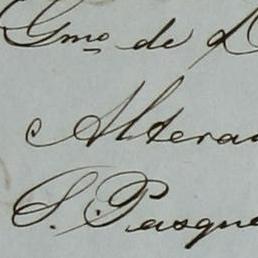 Gmo de D
Altera
S. Pasqu